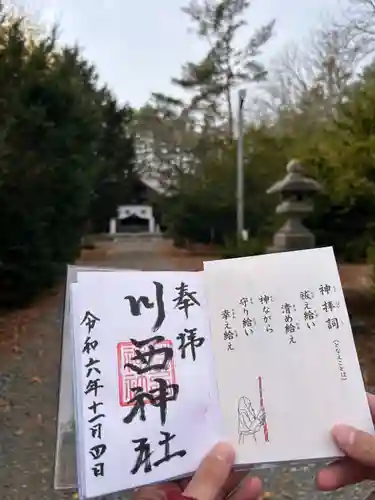 神拝詞(となえことば)
祓え給い
清め給え
神ながら
守り給い
幸え給え
奉拝
川西神社
令和六年十一月四日